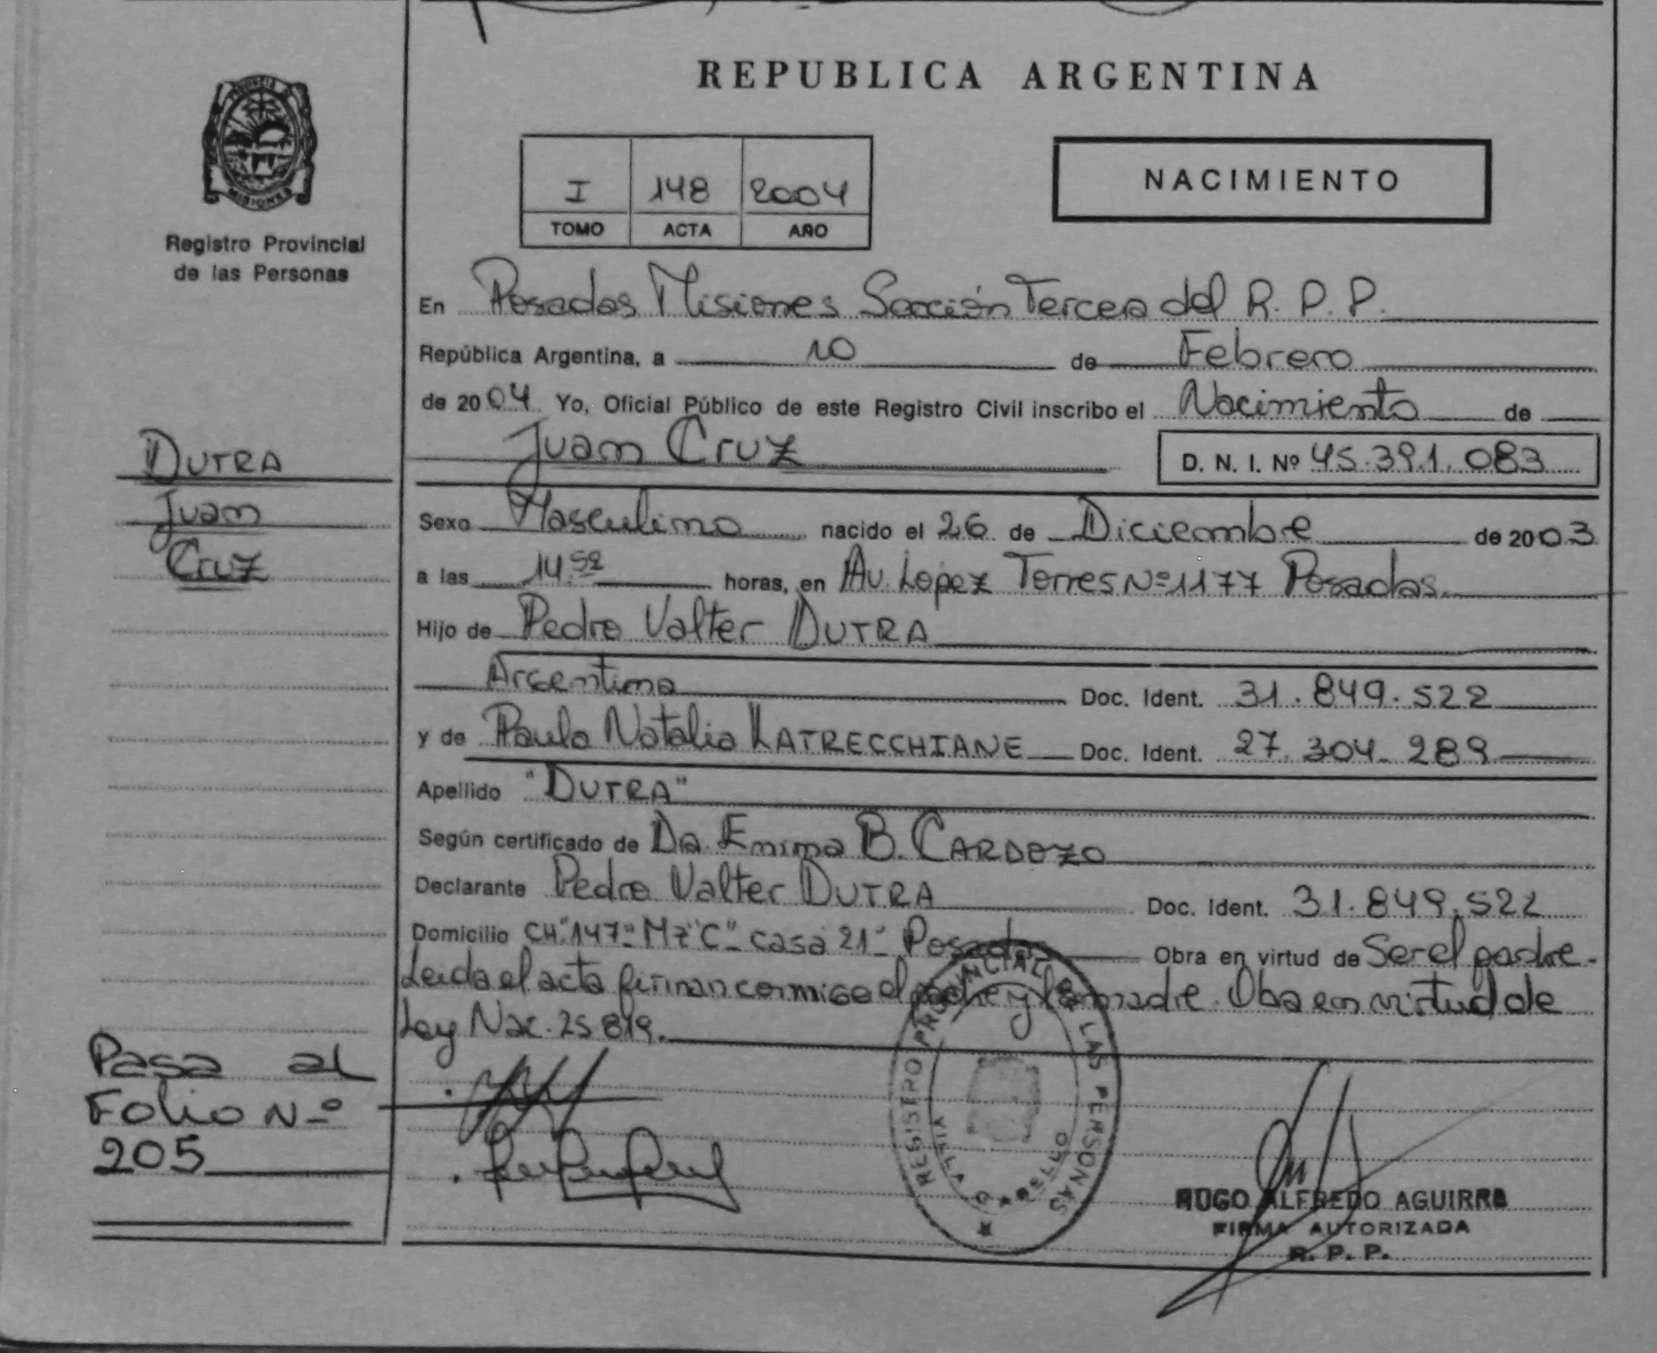 REPUBLICA ARGENTINA
PROVINCIA DE
MISIONES
Registro Provincial
de las Personas
NACIMIENTO
I 148 2004
TOMO ACTA AÑO
En Posadas Misiones Sección Tercera del R. P. P.
República Argentina, a 10 de Febrero
de 2004 Yo, Oficial Público de este Registro Civil inscribo el Nacimiento de
Juan Cruz D. N. I. Nº 45.391.083
DUTRA
Juan
Cruz
Sexo Masculino nacido el 26 de Diciembre de 2003
a las 14:52 horas, en Av. Lopez Torres Nº 1177 Posadas.
Hijo de Pedro Valter DUTRA
Argentino Doc. Ident. 31.849.522
y de Paula Natalia LATRECCHIANE Doc. Ident. 27.304.289
Apellido "DUTRA"
Según certificado de Dra. Emma B. CARDOZO
Declarante Pedro Valter DUTRA Doc. Ident. 31.849.522
Domicilio CH"147" Mz"C" casa 21" Posadas Obra en virtud de Ser el padre.
Leida el acta firman conmigo el padre y la madre. Oba en virtud de
Ley Nac. 25.819.
Pasa al
Folio Nº
205
REGISTRO PROVINCIAL DE LAS PERSONAS
SELLO
HUGO ALFREDO AGUIRRE
FIRMA AUTORIZADA
R. P. P.